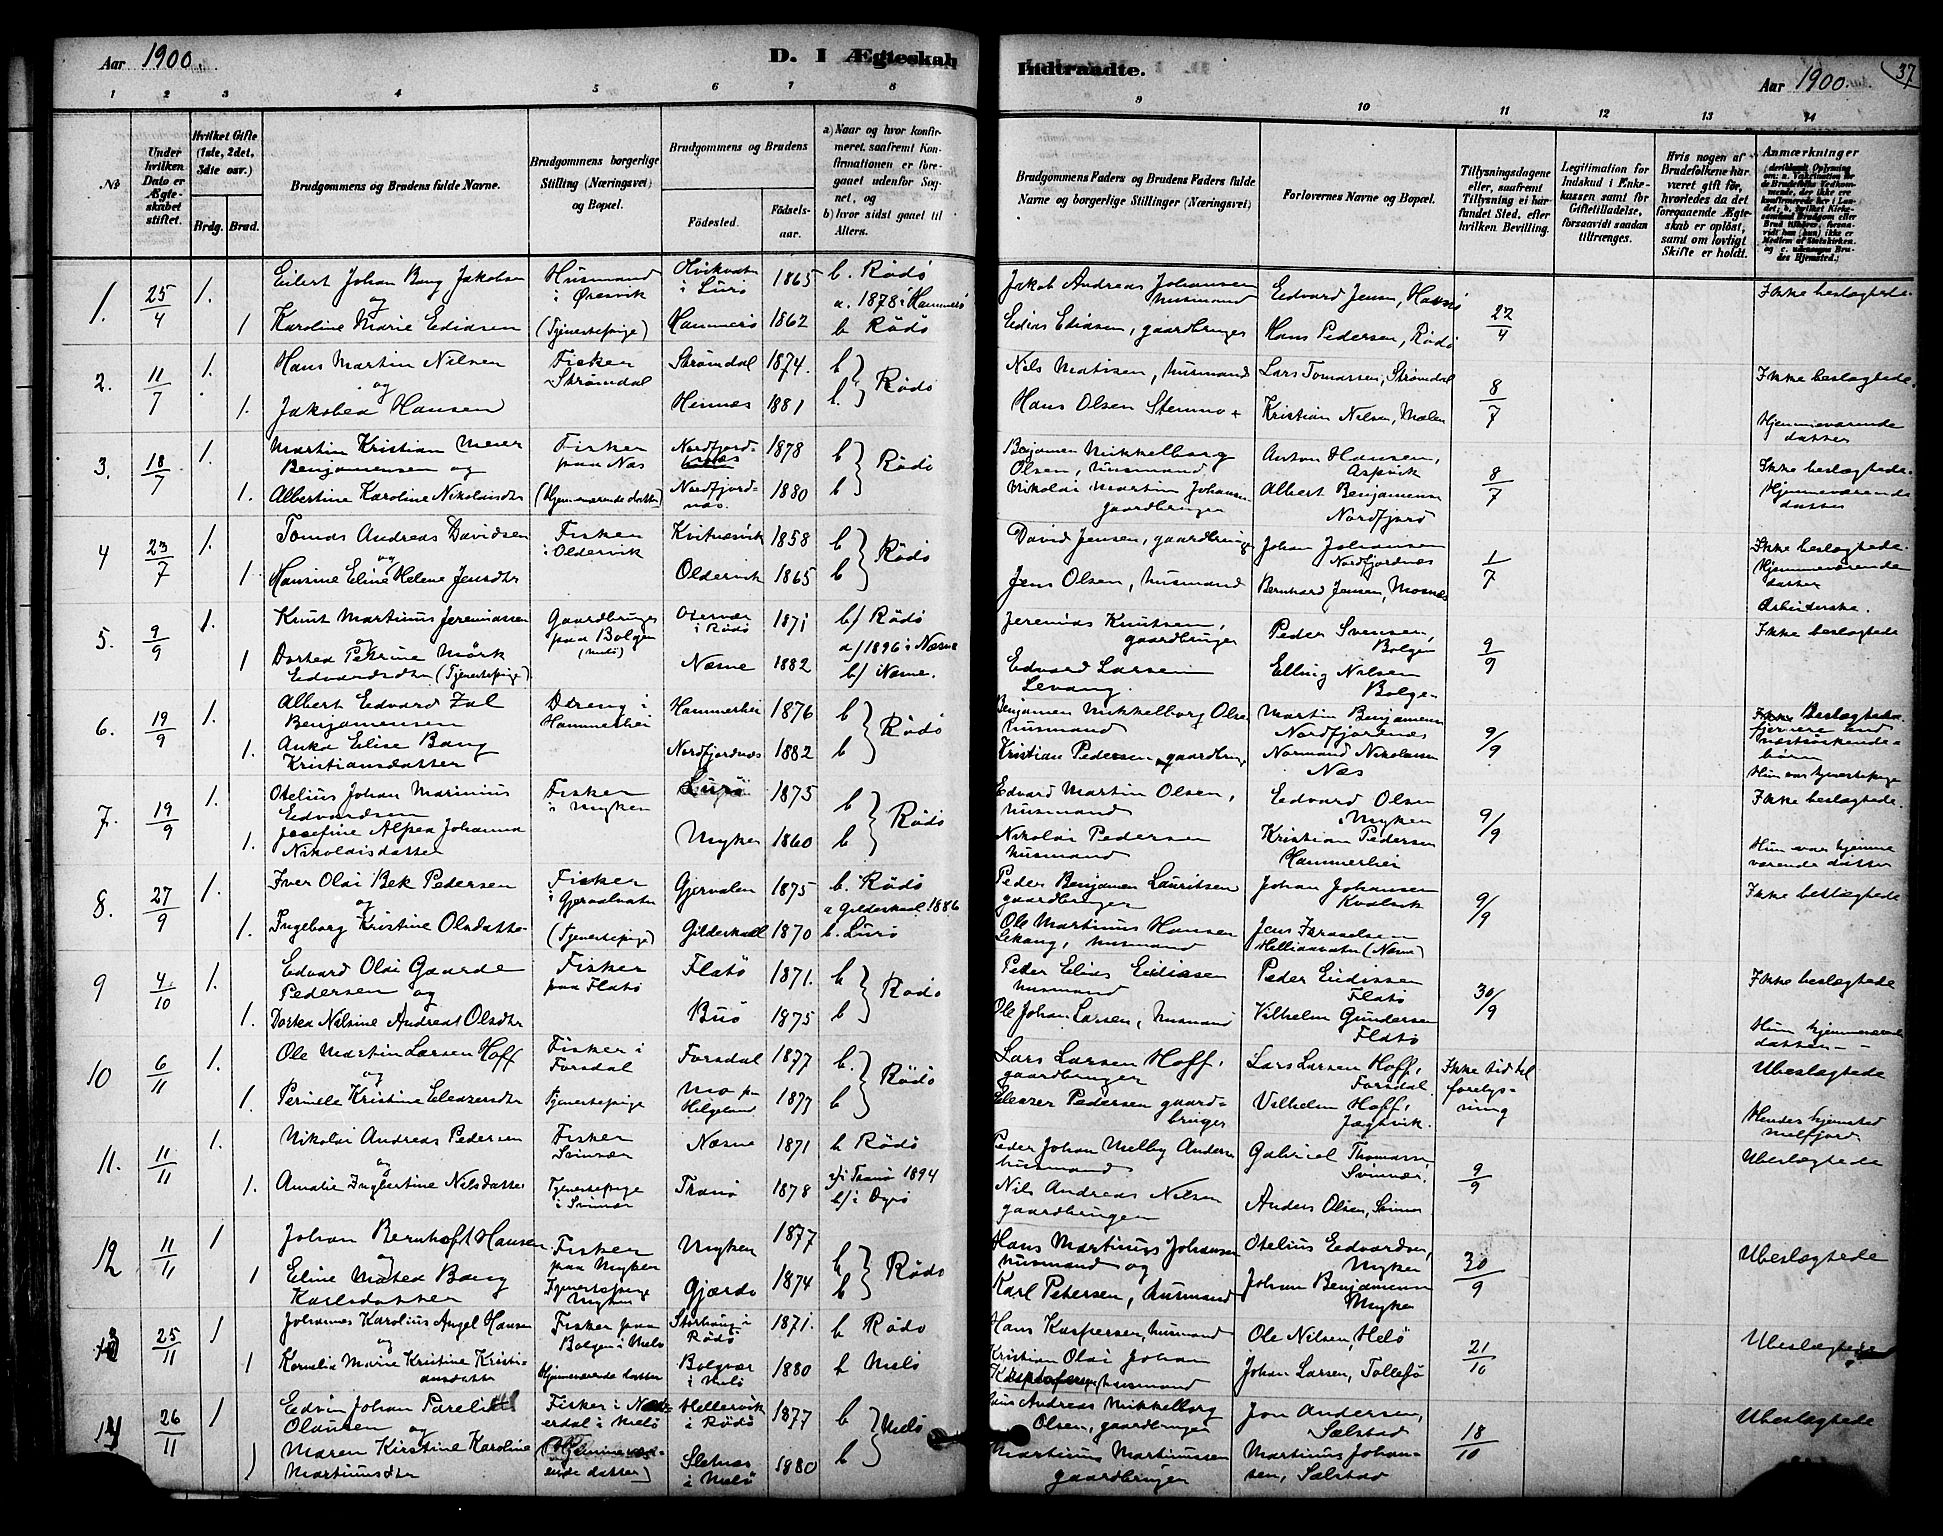 Aar 1900.
D. I Ægteskab
Indtraadte.
Aar 1900.
37
1 2 3 4 5 6 7 8
9 10 11 12 13 14
No
Under hvilken Dato er Ægteskabet stiftet.
Hvilket Gifte (1ste, 2det, 3die osv.)
Brdg. Brud.
Brudgommens og Brudens fulde Navne.
Brudgommens borgerlige Stilling (Næringsvei) og Bopæl.
Brudgommens og Brudens
Födested.
Födselsaar.
a) Naar og hvor konfirmeret, saafremt Konfirmationen er foregaaet udenfor Sognet, og
b) hvor sidst gaaet til Alters.
Brudgommens Faders og Brudens Faders fulde Navne og borgerlige Stillinger (Næringsvei)
Forlovernes Navne og Bopæl.
Tillysningsdagene eller, saafremt Tillysning ei har fundet Sted, efter hvilken Bevilling.
Legitimation for Indskud i Enkekassen samt for Giftetilladelse, forsaavidt saadan tiltrænges.
Hvis nogen af Brudefolkene har været gift før, hvorledes da det foregaaende Ægteskab er opløst, samt om lovligt Skifte er holdt.
Anmærkninger
1. 25/4 1. Eilert Johan Bang Jakobsen Husmand i Øresvik i Lurø 1865 b. Rødø
og a. 1878 i Hammerø
1 Karoline Marie Ediasen (Tjenestepige) Hammerø 1862 b Rødø
Jakob Andreas Johansen husmand Edvard Jensen, 27/4 Ikke beslegtede.
Edias Ediasen, gaardbruger Hans Pedersen, Rødø
2. 11/7 1. Hans Martin Nilsen Fisker Strømdal Strømdal 1874. b
og Rødø
1. Jakobea Hansen Hernæs 1881 b.
Nils Matisen, husmand Lars Tomassen, Strømdal 8/7 Ikke beslægtede.
Hans Olsen Stenmo + Kristian Nilsen, Mælen Hjemmeværende datter
3. 18/7 1. Martin Kristian Meier Benjamensen og Fisker paa Næs Nordfjord- 1878 b
Rødø
1. Albertine Karoline Nikolaisdtr (Hjemmeværende datter) Nordfjordnæs. 1880 b
Benjamen Mikkelborg Olsen, husmand Anton Hansen, Aspvik 8/7 Ikke beslægtede.
Nikolai Martin Johansen gaardbruger Albert Benjamensen Nordfjord Hjemmeværende datter
4 23/7 1. Tomas Andreas Davidsen Fisker i Oldervik Kvitnæsvik 1858 b
og Rødø
1. Hansine Eline Helene Jensdtr Oldervik 1865 b
David Jensen, gaardbruger Johan Johansen Nordfjordnæs 1/7 Ikke beslægtede.
Jens Olsen, husmand Bernhard Jensen, Mosnæs Hjemmeværende datter
5. 9/9 1. Knut Martinus Jeremiassen Gaardbruger paa Bolgen (Melø) Otervær i Rødø 1871 b/ Rødø
og a/ 1896 i Næsne
1 Dortea Petrine Mörk Edvardsdtr (Tjenestepige) Næsne 1882 b/ Næsne.
Jeremias Knutsen, gaardbruger Peder Svensen, Bolgen 9/9 Ikke beslægtede
Edvard Larsen Levang. Elling Nilsen Bolge-
6. 19/9 1. Albert Edvard Zal Benjamensen Dreng i Hammerhei Hammerhei 1876 b
Rødø
1. Anka Elise Bang Kristiansdatter Nordfjordnæs 1882 b
Benjamen Mikkelborg Olsen husmand Martin Benjamensen Nordfjordnæs 9/9 Ikke Beslægtede fjernere end næstsøskendebörn
Kristian Pedersen, gaardbrug. Normand Nikolaisen Næs Hun var tjenestepige
7. 19/9 1. Otelius Johan Marinius Edvardsen Fisker i Myken Lurøi 1875 b
Rødø
1. Josefine Alpea Johanna Nikolaisdatter Myken 1860 b
Edvard Martin Olsen, husmand Edvard Olsen i Myken 9/9 Ikke beslægtede.
Nikolai Pedersen husmand Kristian Pedersen Hammerhei Hun var hjemmeværende datter
8. 27/9 1. Iver Olai Bek Pedersen Fisker i Gjervalvatn Gjervalen 1875 b. Rødø
og a Gildeskaal 1886
1. Ingeborg Kristine Olsdatter (Tjenestepige) Gildeskaal 1870 b. Lurø
Peder Benjamen Lauritsen gaardbruger Johan Johansen Kvalvik 9/9 Ikke beslægtede
Ole Martinus Hansen husmand Jens Israelsen (Næsne)
9 4./10 1. Edvard Olai Gaarde Pedersen og Fisker paa Flatø Flatø 1871. b
Rødø
1. Dortea Nilsine Andrea Olsdtr Buø 1875 b
Peder Elias Ediassen husmand Peder Flatø 30/9 Ikke beslægtede
Ole Johan Larsen, husmand Vilhelm Gundersen Flatø Hun hjemmeværende datter
10 6/11 1. Ole Martin Larsen Hoff Fisker i Forsdal Forsdal 1877 b.
og Rødø
1. Pernille Kristine Eleazersdtr Tjenestepige Mo pr Helgeland 1873 b
Lars Larsen Hoff, gaardbruger Lars Larsen Hoff, Forsdal Ikke tid til forelysning Ubeslægtede
Eleazer Pedersen gaardbruger Vilhelm Hoff, Jægtvik. Hendes hjemsted Melfjord.
11. 11/11 1. Nikolai Andreas Pedersen Fisker Svinvær Næsne 1871 b Rødø
og a/i Tranø 1894
1. Amalie Ingbertine Nilsdatter Tjenestepige i Svinvær Tranø 1878 b/i
Peder Johan Melby Andersen husmand Gabriel Thomassen Svinvær 9/9 Ubeslægtede
Nils Andreas Nilsen gaardbruger Anders Olsen, Svinvær
12 11/11 1 Johan Bernhoft Hansen Fisker paa Myken Myken 1877 b
og Rødø
1 Eline Matea Bang Karlsdatter Tjenestepige Myken Gjærdø 1874 b
Hans Martinus Johansen husmand og Otelius Edvardsen, Myken 30/9 Ubeslægtede
Karl Petersen, husmand Johan Benjaminsen Myken
13 25/11 1 Johannes Karolius Angel Hansen Fisker paa Bolgen i Melø Storhaug i Rødø 1871. b Rødø
og
1 Kornelia Marie Kristine Kristiansdatter Hjemmeværende datter Bolgvær i Melø 1880 b Melø
Hans Kaspersen, husmand Ole Nilsen, Melø 21/10 Ubeslægtede
Kristian Olai Johan husmand Johan Larsen, Tollefø
14 26/11 1 Edvin Johan Parelius Olausen og Fisker i i Melø Hellervik i Rødø 1877 b
Melø
1 Maren Kirstine Karoline Martinusdtr (Hjemmeværende datter) Sletnæs i Melø 1880 b
Andreas Mikkelborg Olsen, gaardbruger Jon Andersen, Sælstad 18/10 Ubeslægtede
Martinus Martinussen gaardbruger Martinus Johansen, Sælstad